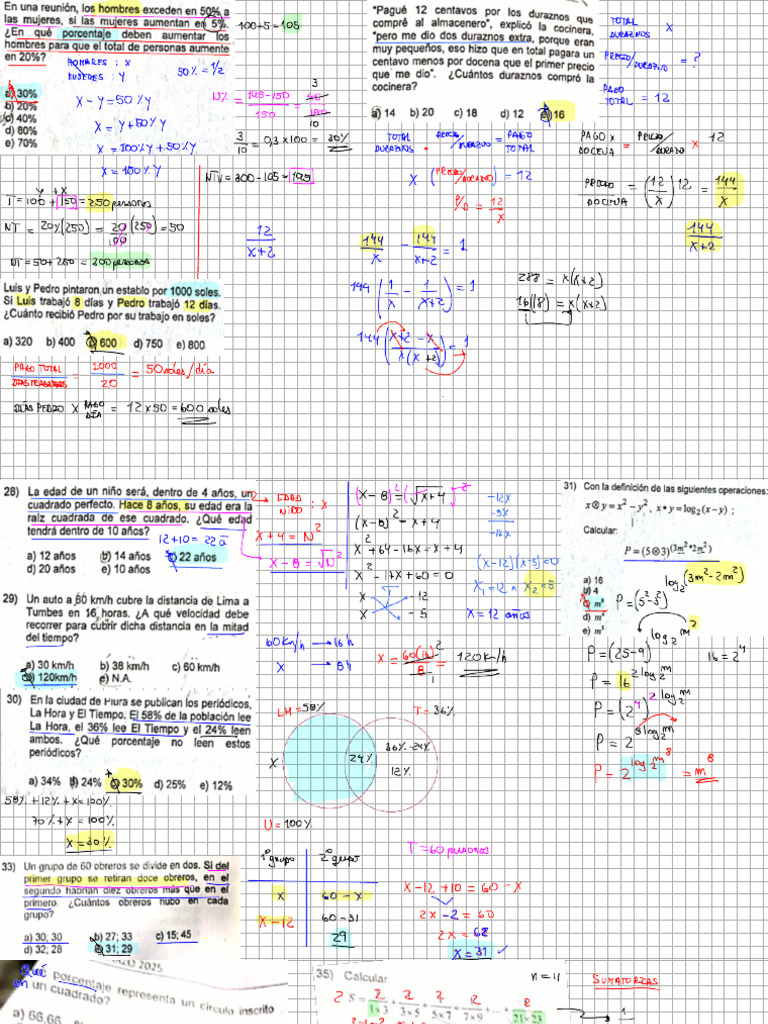 En una reunión, los hombres exceden en 50% a
las mujeres, si las mujeres aumentan en 5%.
¿En qué porcentaje deben aumentar los
hombres para que el total de personas aumente
en 20%?
a) 30%
b) 20%
c) 40%
d) 80%
e) 70%
HOMBRES : X
MUJERES : Y
50% = 1/2
X - Y = 50% Y
X = Y + 50% Y
X = 100% Y + 50% Y
X = 150% Y
100+5 = 105
N% = 195-150 / 150 = 45 / 150
3
10
3/10 = 0,3 x 100 = 30%
NTV = 300 - 105 = 195
Y + X
T = 100 + 150 = 250 personas
NT = 20% (250) = 20/100 (250) = 50
NT = 50 + 250 = 300 personas
"Pagué 12 centavos por los duraznos que
compré al almacenero", explicó la cocinera,
"pero me dio dos duraznos extra, porque eran
muy pequeños, eso hizo que en total pagara un
centavo menos por docena que el primer precio
que me dio". ¿Cuántos duraznos compró la
cocinera?
a) 14 b) 20 c) 18 d) 12 e) 16
TOTAL DURAZNOS X
PRECIO/DURAZNO = ?
PAGO TOTAL = 12
TOTAL DURAZNOS · PRECIO/DURAZNO = PAGO TOTAL
X (PRECIO/DURAZNO) = 12
P/D = 12/X
PAGO X DOCENA = PRECIO/DURAZNO X 12
PRECIO/DOCENA = (12/X) 12 = 144/X
144/X+2
12/X+2
144/X - 144/X+2 = 1
144 (1/X - 1/X+2) = 1
144 (X+2-X / X(X+2)) = 1
288 = X(X+2)
16(18) = X(X+2)
Luis y Pedro pintaron un establo por 1000 soles.
Si Luis trabajó 8 días y Pedro trabajó 12 días.
¿Cuánto recibió Pedro por su trabajo en soles?
a) 320 b) 400 c) 600 d) 750 e) 800
PAGO TOTAL / DIAS TRABAJADOS = 1000/20 = 50 soles/día
DÍAS PEDRO X PAGO DÍA = 12 x 50 = 600 soles
28) La edad de un niño será, dentro de 4 años, un
cuadrado perfecto. Hace 8 años, su edad era la
raíz cuadrada de ese cuadrado. ¿Qué edad
tendrá dentro de 10 años?
12+10 = 22 a
a) 12 años b) 14 años c) 22 años
d) 20 años e) 10 años
EDAD NIÑO : X
X + 4 = N²
X - 8 = √N²
(X - 8)² = (√X+4)²
(X-8)² = X + 4
X² + 64 - 16X = X + 4
X² - 17X + 60 = 0
X - 12
X - 5
-12X
-5X
-17X
(X-12)(X-5) = 0
X₁ = 12 ∧ X₂ = 5
X = 12 años
29) Un auto a 60 km/h cubre la distancia de Lima a
Tumbes en 16 horas. ¿A qué velocidad debe
recorrer para cubrir dicha distancia en la mitad
del tiempo?
a) 30 km/h b) 38 km/h c) 60 km/h
d) 120km/h e) N.A.
60 Km/h → 16 h
X → 8 h
X = 60(16)/8 = 120 K/h
30) En la ciudad de Piura se publican los periódicos,
La Hora y El Tiempo. El 58% de la población lee
La Hora, el 36% lee El Tiempo y el 24% leen
ambos. ¿Qué porcentaje no leen estos
periódicos?
a) 34% b) 24% c) 30% d) 25% e) 12%
58% + 12% + X = 100%
70% + X = 100%
X = 30%
LH = 58%
T = 36%
X
24%
36% - 24%
12%
U = 100%
31) Con la definición de las siguientes operaciones:
x⊗y = x² - y², x*y = log₂(x - y) ;
Calcular:
P = (5⊗3)^(3m²*2m²)
a) 16
b) 4
c) m⁸
d) m⁴
P = (5²-3²)^log₂(3m²-2m²)
P = (25-9)^log₂m²
16 = 2⁴
P = 16^2log₂m
P = (2⁴)^2log₂m
P = 2^8log₂m
P = 2^log₂m⁸ = m⁸
33) Un grupo de 60 obreros se divide en dos. Si del
primer grupo se retiran doce obreros, en el
segundo habrían diez obreros más que en el
primero. ¿Cuántos obreros hubo en cada
grupo?
a) 30; 30 b) 27; 33 c) 15; 45
d) 32; 28 e) 31; 29
1° grupo 2° grupo
X 60 - X
X - 12 60 - 31
29
T = 60 personas
X - 12 + 10 = 60 - X
2X - 2 = 60
2X = 62
X = 31
2025
Qué porcentaje representa un círculo inscrito
en un cuadrado?
a) 66,66
35) Calcular
n = 11
2 S = 2/1×3 + 2/3×5 + 2/5×7 + 2/7×9 + ... + 2/21×23
SUMATORIAS